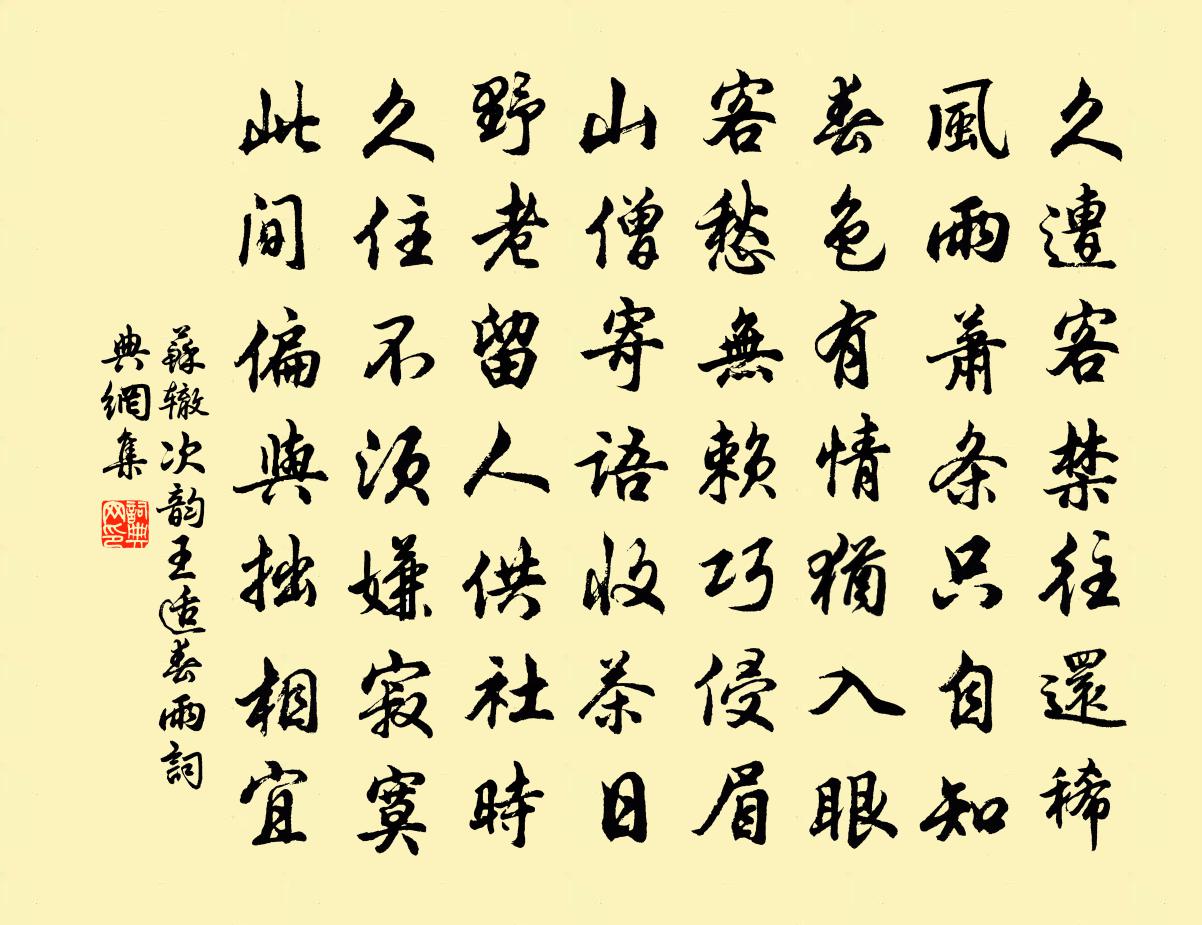 久遭客禁往還稀
風雨蕭条只自知
春色有情猶入眼
客愁無賴巧侵眉
山僧寄語收茶日
野老留人供社時
久住不須嫌寂寞
此間偏與拙相宜
蘇辙次韵王适春雨詞
典網集
詞典
网印